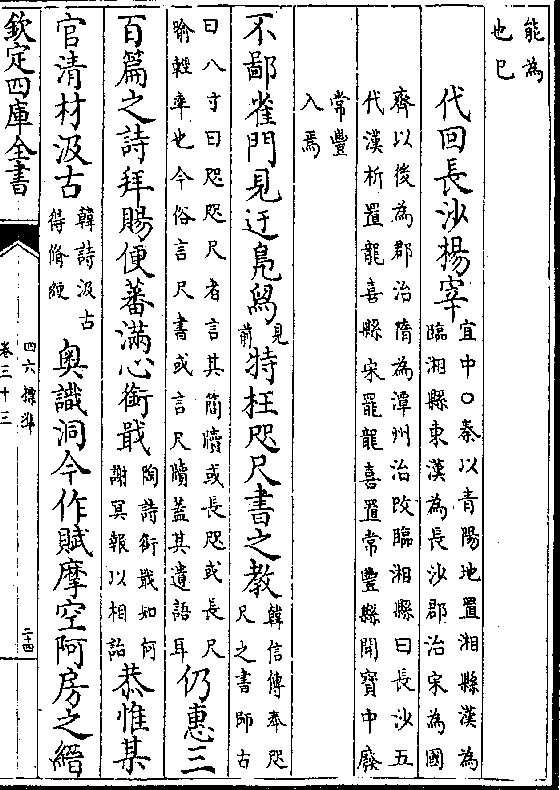 能為
也已
代回長沙楊宰
宜中○秦以青陽地置湘縣漢為
臨湘縣東漢為長沙郡治宋為國
齊以後為郡治隋為潭州治改臨湘縣曰長沙五
代漢析置龍喜縣宋罷龍喜置常豐縣開寶中廢
常豐
入焉
不鄙雀門見迂鳧舄
見
前
特枉咫尺書之教
韓信傳奉咫
尺之書師古
曰八寸曰咫咫尺者言其簡牘或長咫或長尺
喻輕率也今俗言尺書或言尺牘蓋其遺語耳
仍惠三
百篇之詩拜賜便蕃滿心銜戢
陶詩銜戢如何
謝冥報以相詒
恭惟某
官清材汲古
韓詩汲古
得脩綆
奧識洞今作賦摩空阿房之縉
欽定四庫全書
四六標準
卷三十三
二十四